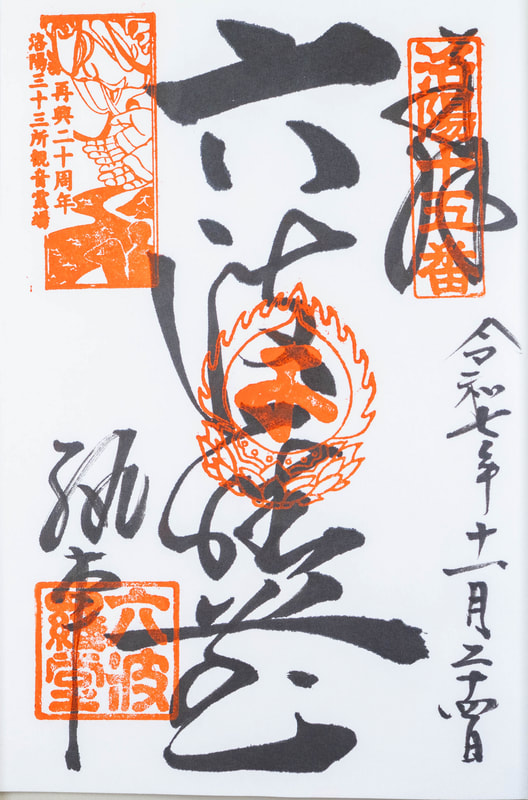 奉拝
洛陽十五番
令和七年十一月二十四日
六波羅堂
再興二十周年
洛陽三十三所観音霊場
執事
六波
羅堂